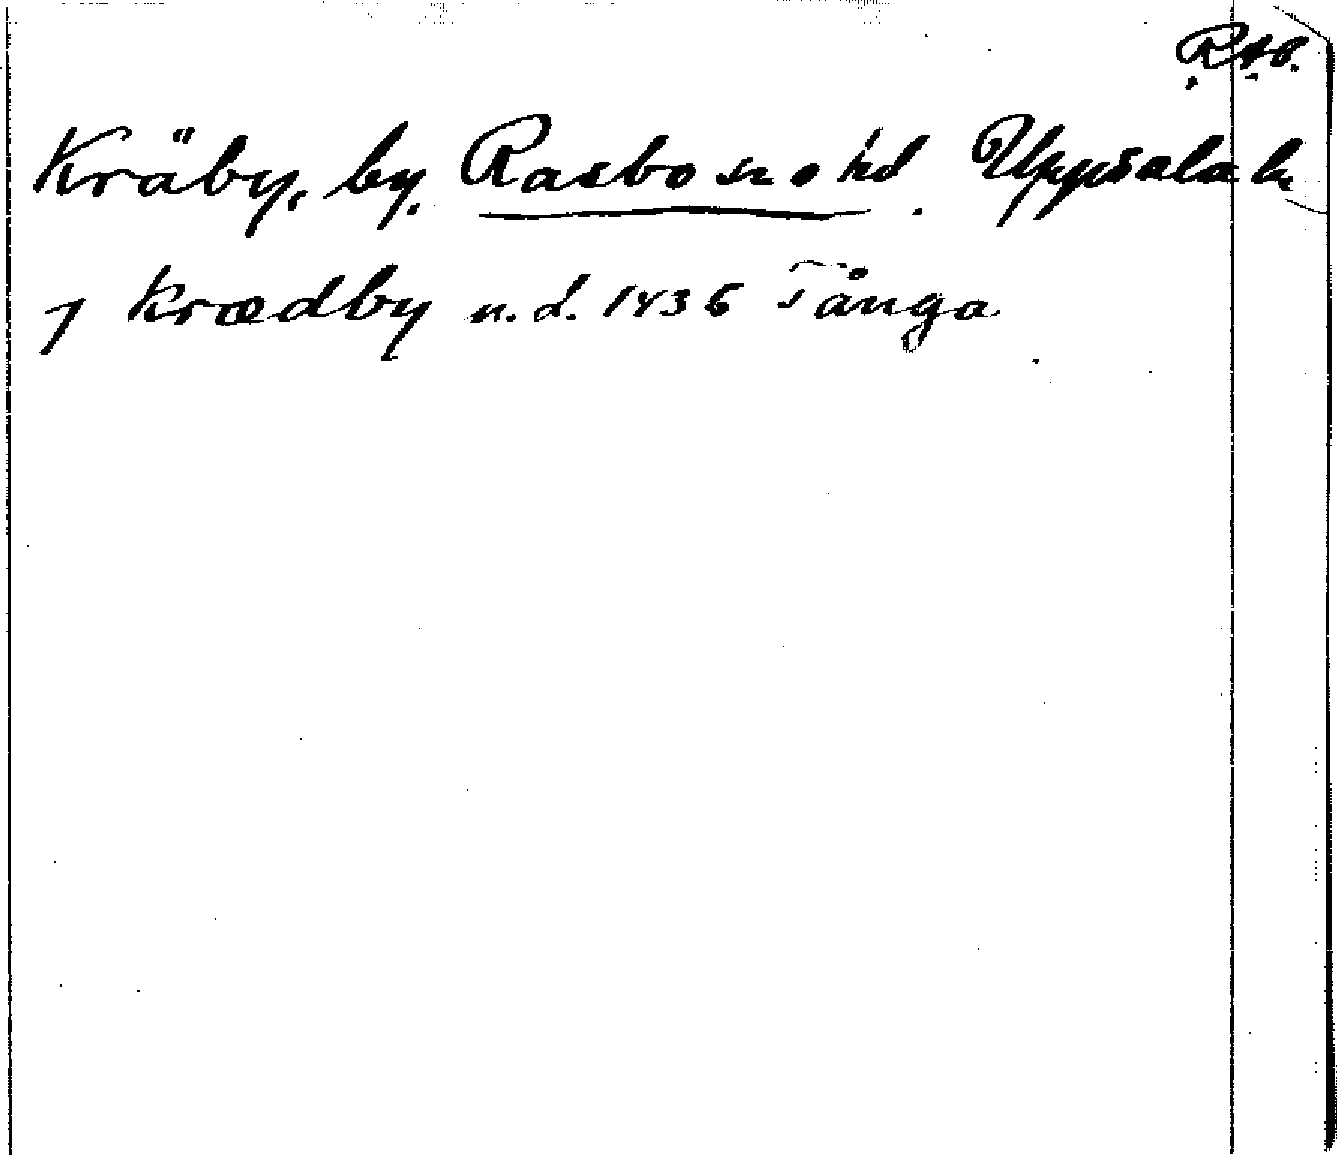 R.A.
Kräby, by. Rasbo sn o hd. Uppsala ln
J krædby n.d. 1436 Tånga